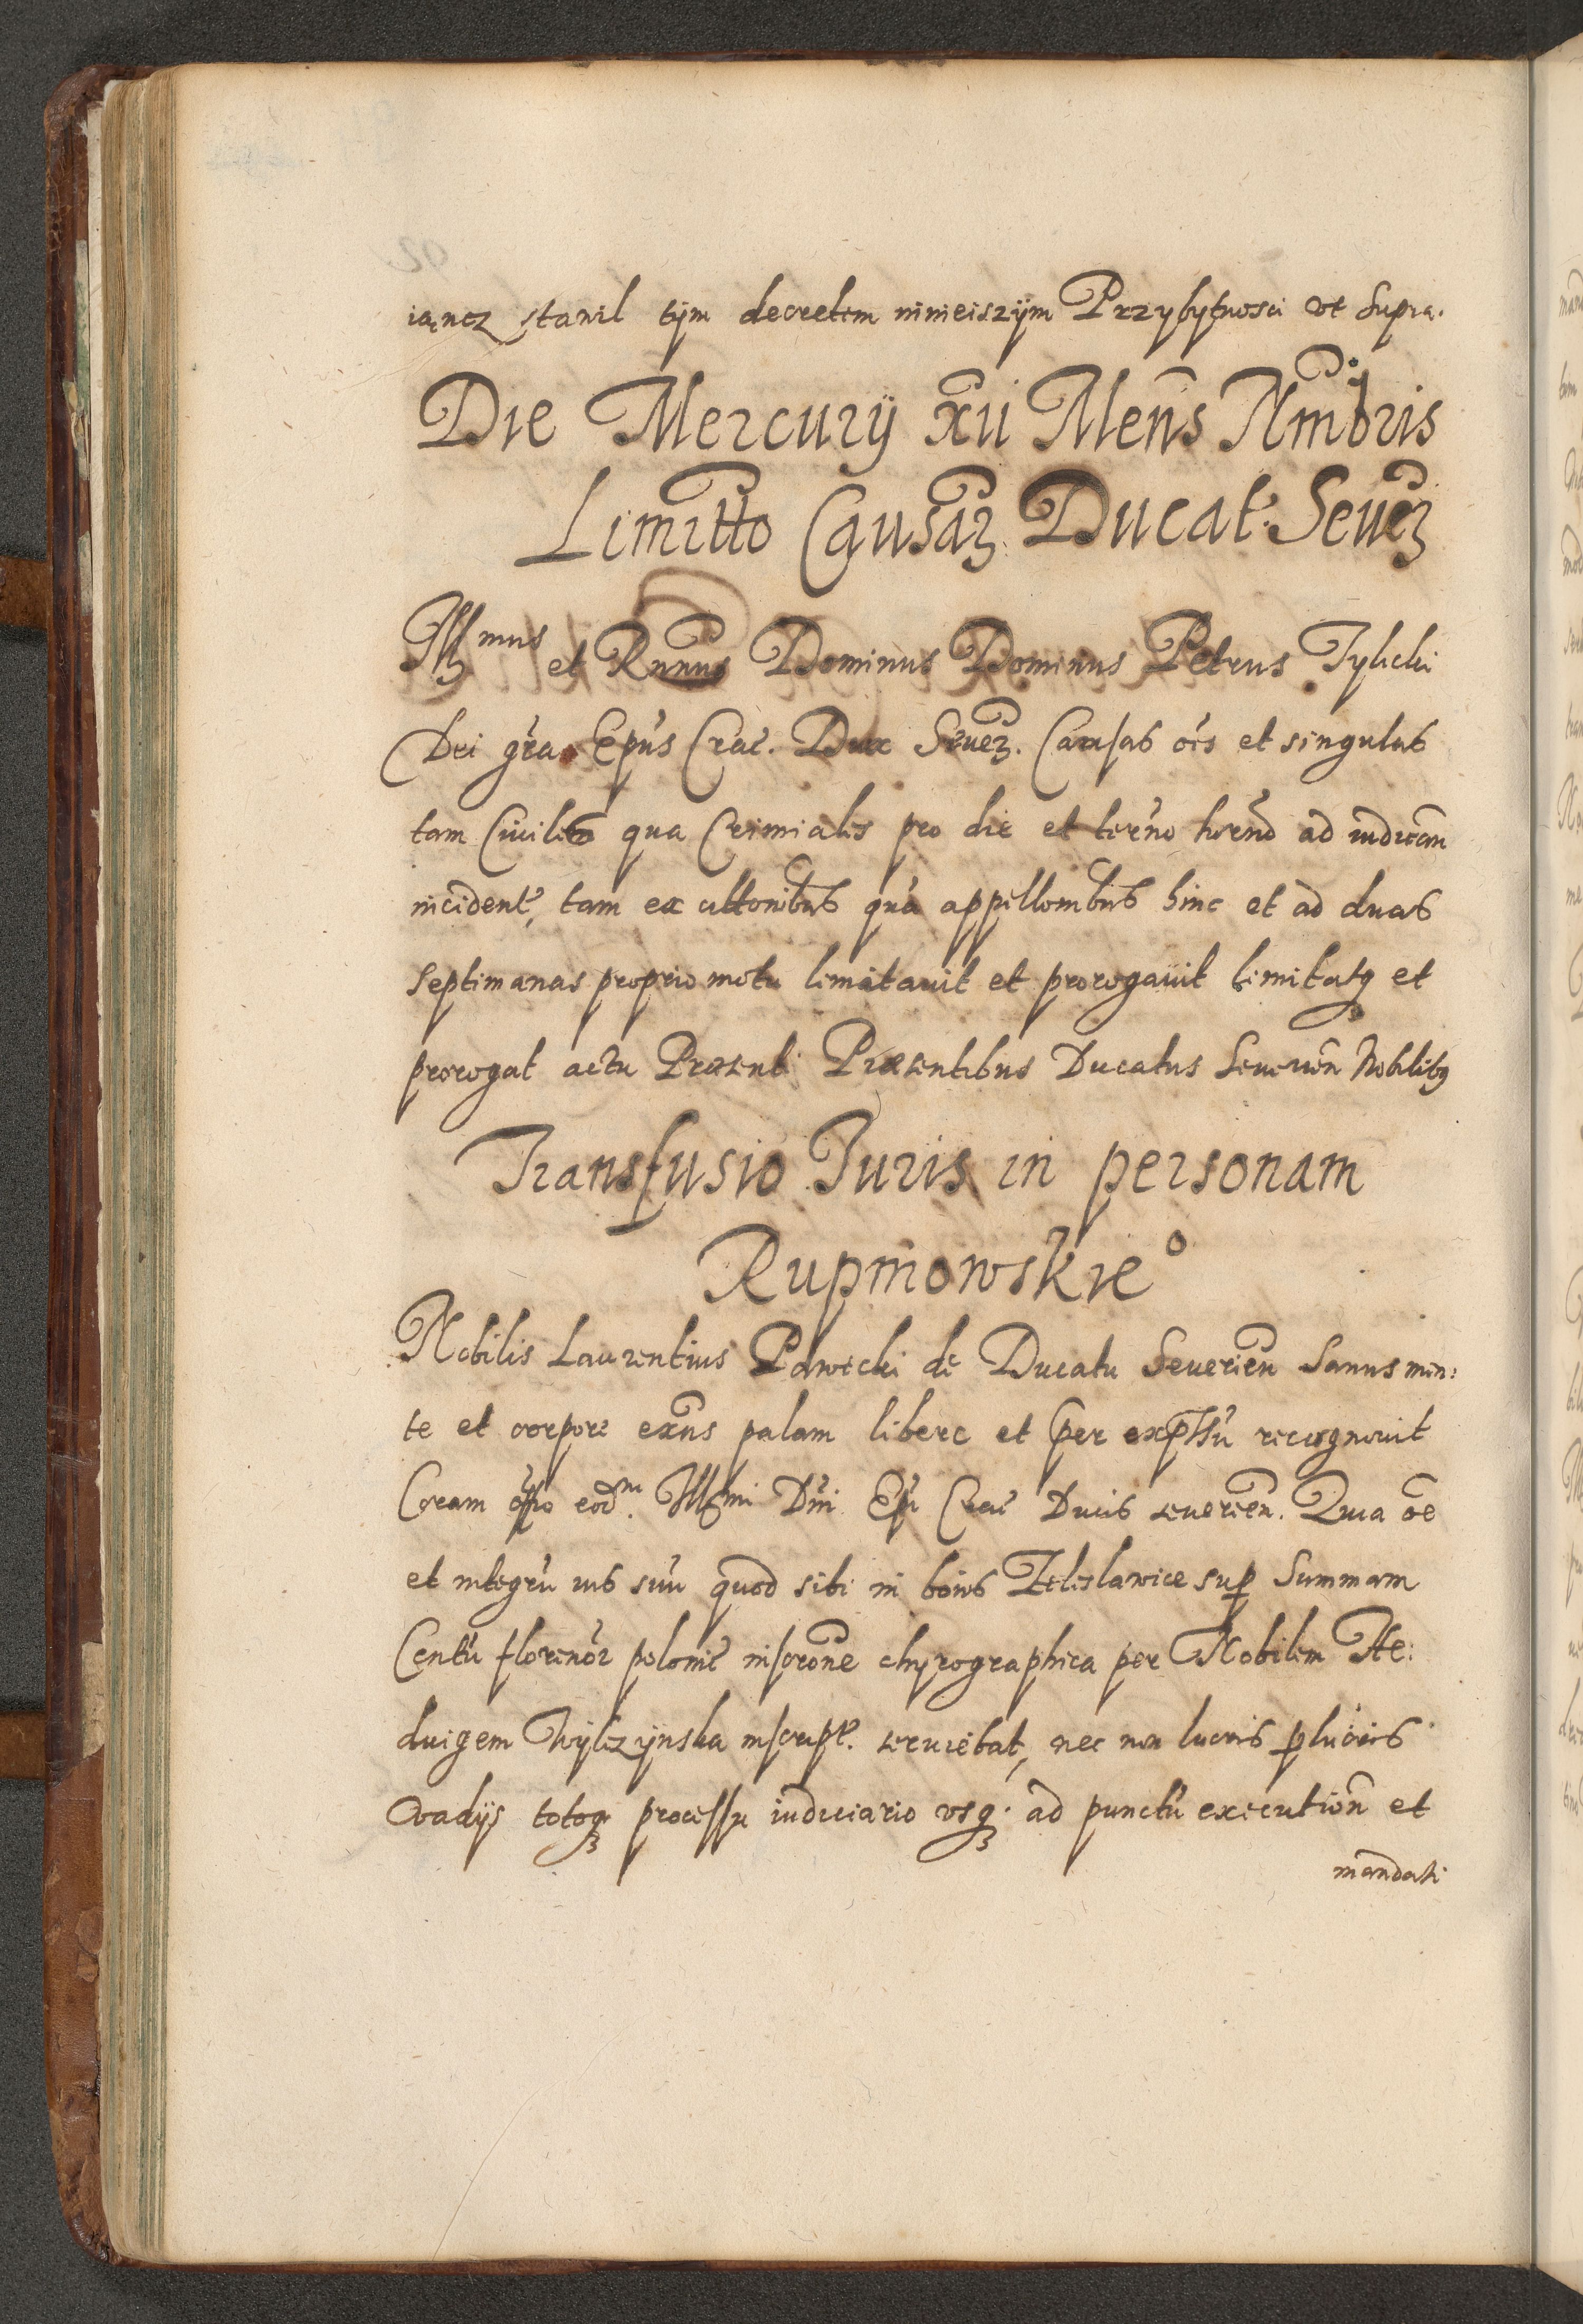 iąncz stawil tÿm decretem ninieiszÿm Przybytnosci vt Supra.
Die Mercurÿ xii Mens̃ Nmbris
Limitto Causaȝ Ducat: Seueȝ
Illmus et Rnnus Dominus Dominus Petrus Tylicki
Dei gr̃a Epũs Crac̃. Dux Seueȝ. Causas oẽs et singulas
tam Ciuiles qua Crimialis pro die et ter̃no hor̃no ad iudicem
incident, tam ex cittonibus quã appellombus hinc et ad duas
septimanas proprio motu limitauit et prorogauit limitatqȝ et
prorogat actu Præsenti Præsentibus Ducatus Seuerien̄ Nobilibȝ
Transfusio Juris in personam
Rupniowskie°
Nobilis Laurentius Pawecki de Ducatu Seuerien̄ Sanus men:
te et corpore exñs palam libere et per expssũ recognouit
Coram offo eodm. Illmi Dñi Epi Crac̃ Ducis seuerien̄. Quia oẽ
et integrũ ius suũ quod sibi in bonis Zelislawice sup Summam
Centũ florenor polonic̃ inscrone chyrographica per Nobilem He:
duigem Wÿliczÿnska inscript. seruiebat, nec non lucris pluribus
Vadÿs totoqȝ processu iudiciario vsqȝ ad punctũ execution̄ et
mandati